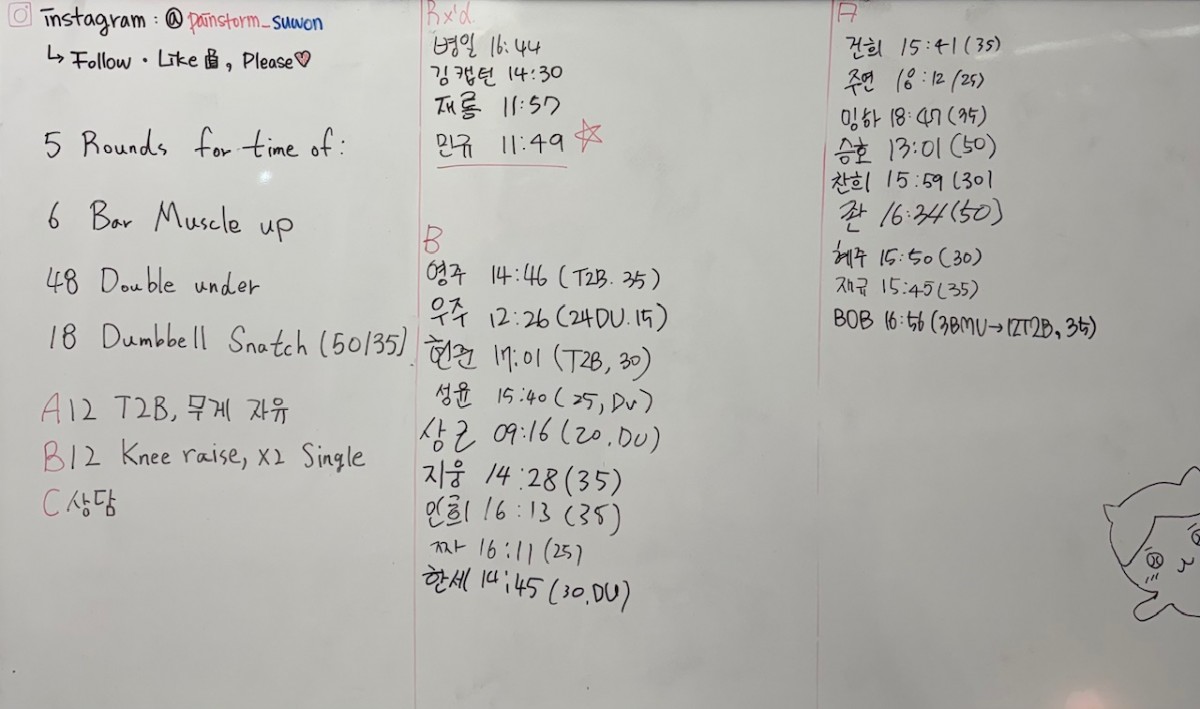 instagram : @painstorm_suwon
↳ Follow · Like 👍, Please♡
5 Rounds for time of :
6 Bar Muscle up
48 Double under
18 Dumbbell Snatch (50/35)
A 12 T2B, 무게 자유
B 12 Knee raise, x2 Single
C 상담
Rx'd
병일 16:44
김캡틴 14:30
재룡 11:57
민규 11:49 ☆
B
영주 14:46 (T2B. 35)
우주 12:26 (24DU. 15)
현준 17:01 (T2B, 30)
성윤 15:40 (25, DU)
상근 09:16 (20. DU)
지웅 14:28 (35)
인희 16:13 (35)
짜 16:11 (25)
한세 14:45 (30. DU)
A
건희 15:41 (35)
주연 18:12 (25)
밍하 18:47 (35)
승호 13:01 (50)
찬희 15:59 (30)
좐 16:34 (50)
혜주 15:50 (30)
재규 15:45 (35)
BOB 16:56 (3BMU→12T2B, 35)